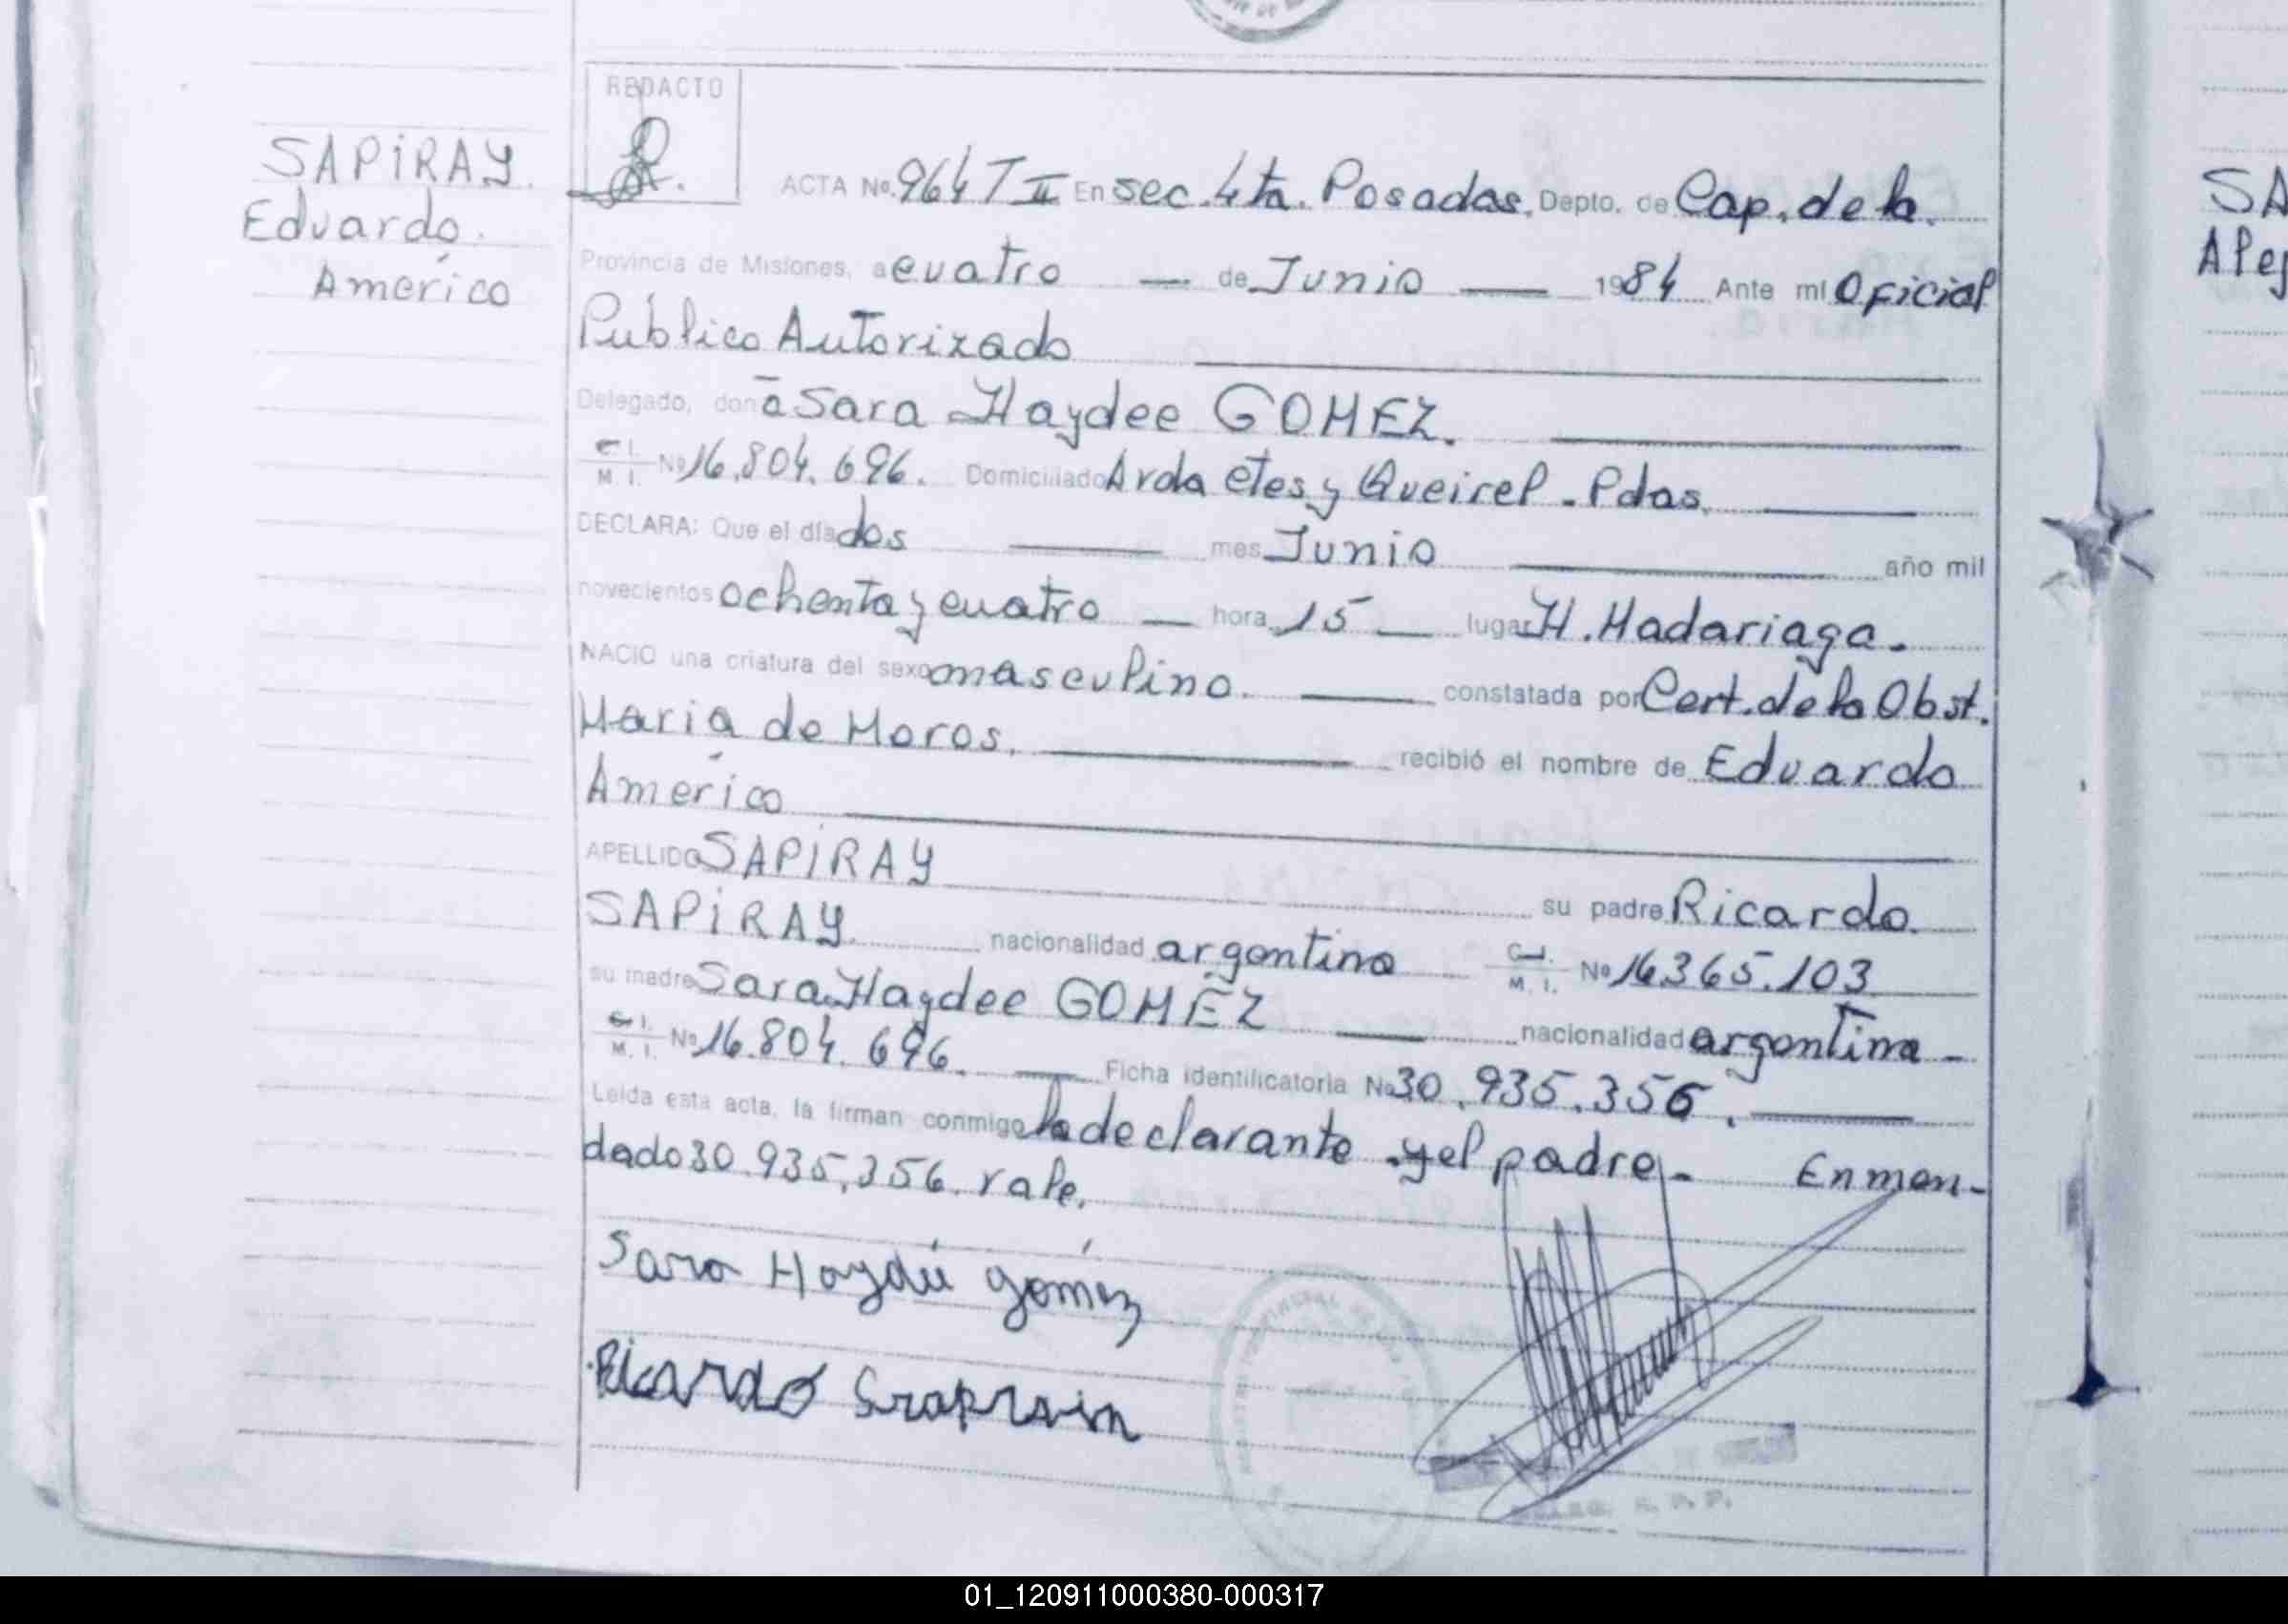 REDACTO
SAPIRAY
Eduardo
Américo
ACTA No. 964 T II En sec. 4ta. Posadas, Depto. de Cap. de la
Provincia de Misiones, a cuatro — de Junio — 1984 Ante mí Oficial
Público Autorizado
Delegado, doña Sara Haydee GOMEZ.
C. I. M. I. No 16.804.696. Domiciliado Avda Ctes y Queirel - Pdas.
DECLARA: Que el día dos — mes Junio — año mil
novecientos ochenta y cuatro — hora 15 — lugar H. Madariaga.
NACIO una criatura del sexo masculino. — constatada por Cert. de la Obst.
María de Moros. — recibió el nombre de Eduardo
Américo
APELLIDO SAPIRAY su padre Ricardo
SAPIRAY nacionalidad argentino C. I. M. I. No 16365.103
su madre Sara Haydee GOMEZ — nacionalidad argentina -
C. I. M. I. No 16.804.696. — Ficha identificatoria No 30.935.356. —
Leída esta acta, la firman conmigo la declarante y el padre. - Enmen-
dado 30.935.356. vale.
Sara Haydée Gómez
Ricardo
SA
01_120911000380-000317